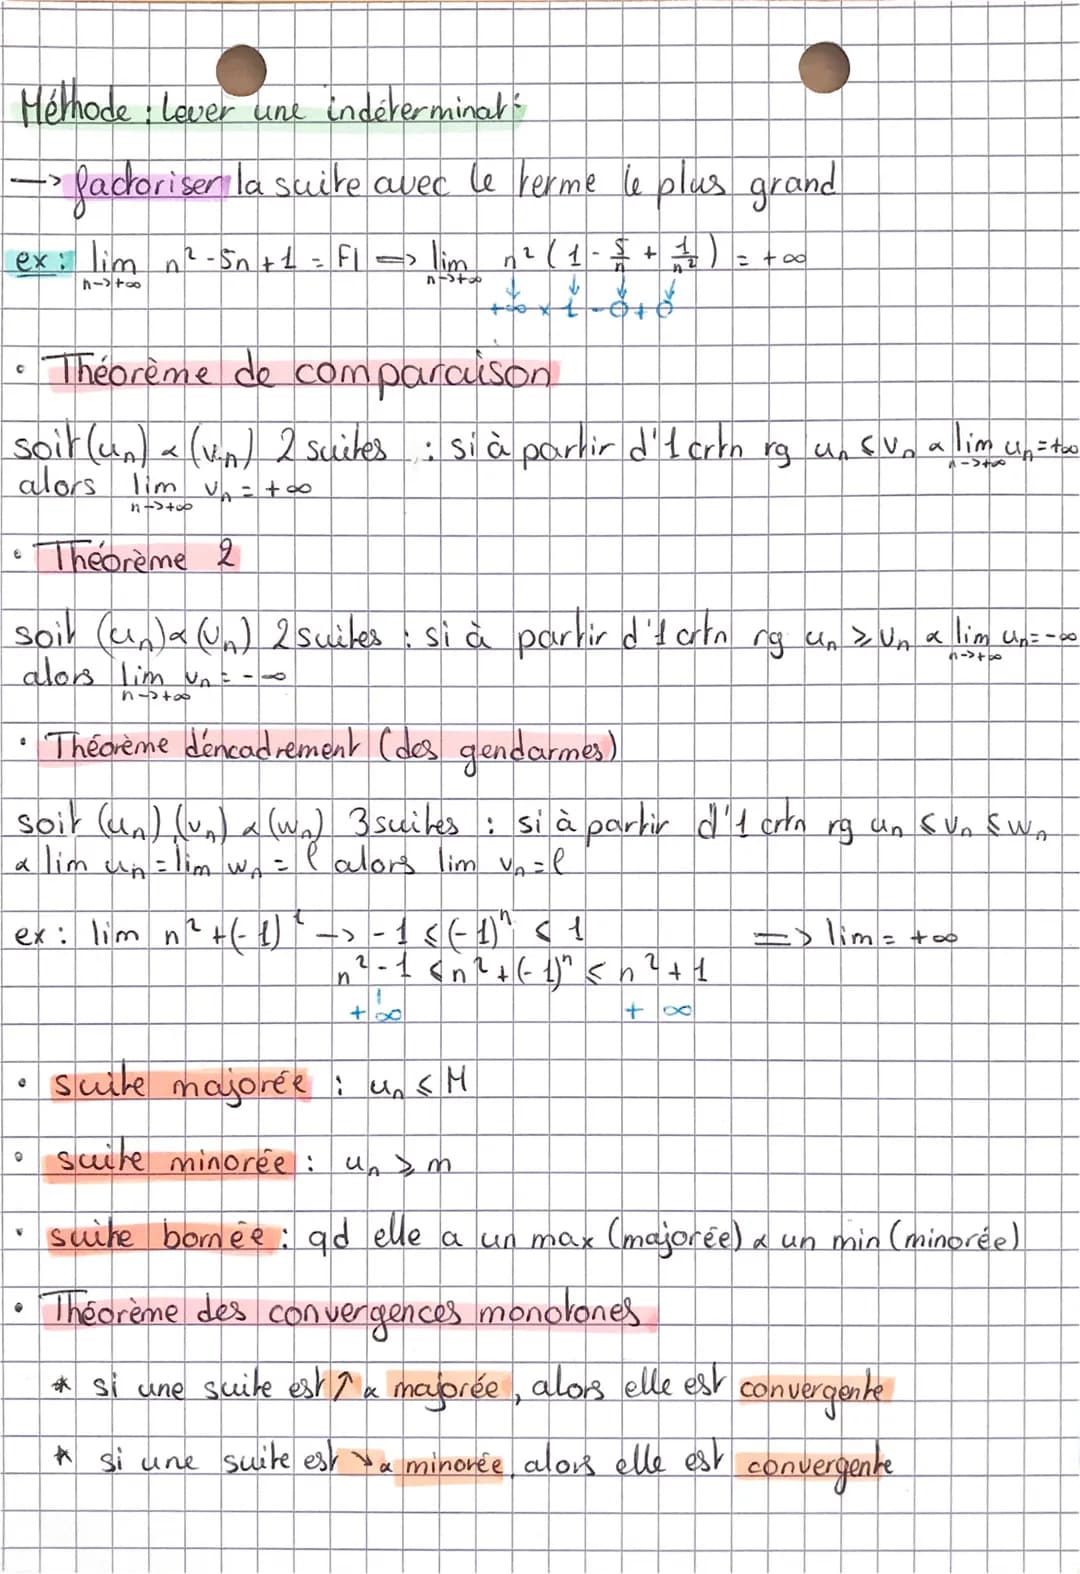 Méthode : Lever une indéterminat°:
—> factoriser la suite avec le terme le plus grand
ex : lim n² - 5n + 1 = FI => lim n² (1 - 5/n + 1/n²) = +∞
n->+∞ n->+∞
+∞ x 1 - 0 + 0
• Théorème de comparaison
soit (un) & (vn) 2 suites : si à partir d'1 crtn rg un ⩽ vn & lim un = +∞
n->+∞
alors lim vn = +∞
n->+∞
• Théorème 2
soit (un) & (vn) 2 suites : si à partir d'1 crtn rg un ⩾ vn & lim un = -∞
n->+∞
alors lim vn = -∞
n->+∞
• Théorème d'encadrement (des gendarmes)
soit (un), (vn) & (wn) 3 suites : si à partir d'1 crtn rg un ⩽ vn ⩽ wn
& lim un = lim wn = l alors lim vn = l
ex : lim n² + (-1)^t —> -1 ⩽ (-1)ⁿ ⩽ 1 => lim = +∞
n² - 1 ⩽ n² + (-1)ⁿ ⩽ n² + 1
+∞ +∞
• suite majorée : un ⩽ M
• suite minorée : un ⩾ m
• suite bornée : qd elle a un max (majorée) & un min (minorée)
• Théorème des convergences monotones
* si une suite est ↗ & majorée, alors elle est convergente
* si une suite est ↘ & minorée, alors elle est convergente